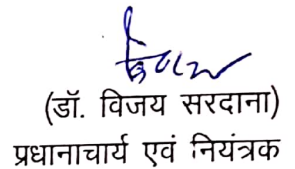 (डॉ. विजय सरदाना)
प्रधानाचार्य एवं नियंत्रक